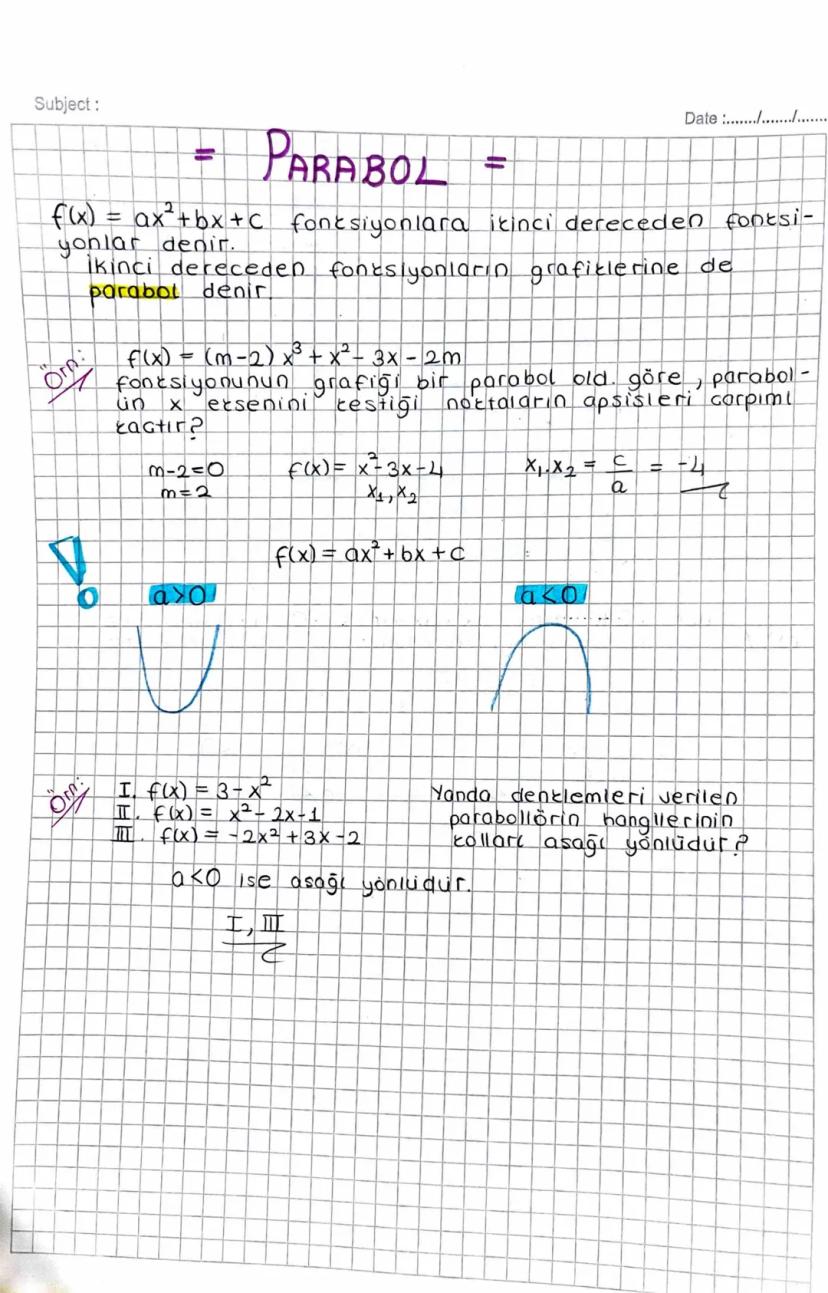 Subject :
Date :......./......./.......
= PARABOL =
f(x) = ax²+bx+c fonksiyonlara ikinci dereceden fonksi-
yonlar denir.
ikinci dereceden fonksiyonların grafiklerine de
parabol denir.
Örn: f(x) = (m-2) x³ + x² - 3x - 2m
fonksiyonunun grafiği bir parabol old. göre, parabol-
ün x eksenini kestiği noktaların apsisleri çarpımı
kaçtır?
m-2=0 f(x) = x²-3x-4 x₁.x₂ = c/a = -4
m=2 x₁, x₂
! f(x) = ax²+bx+c
a>0 a<0
Örn: I. f(x) = 3-x² Yanda denklemleri verilen
II. f(x) = x²-2x-1 parabollörin hangilerinin
III. f(x) = -2x²+3x-2 kolları aşağı yönlüdür?
a<0 ise aşağı yönlüdür.
I, III